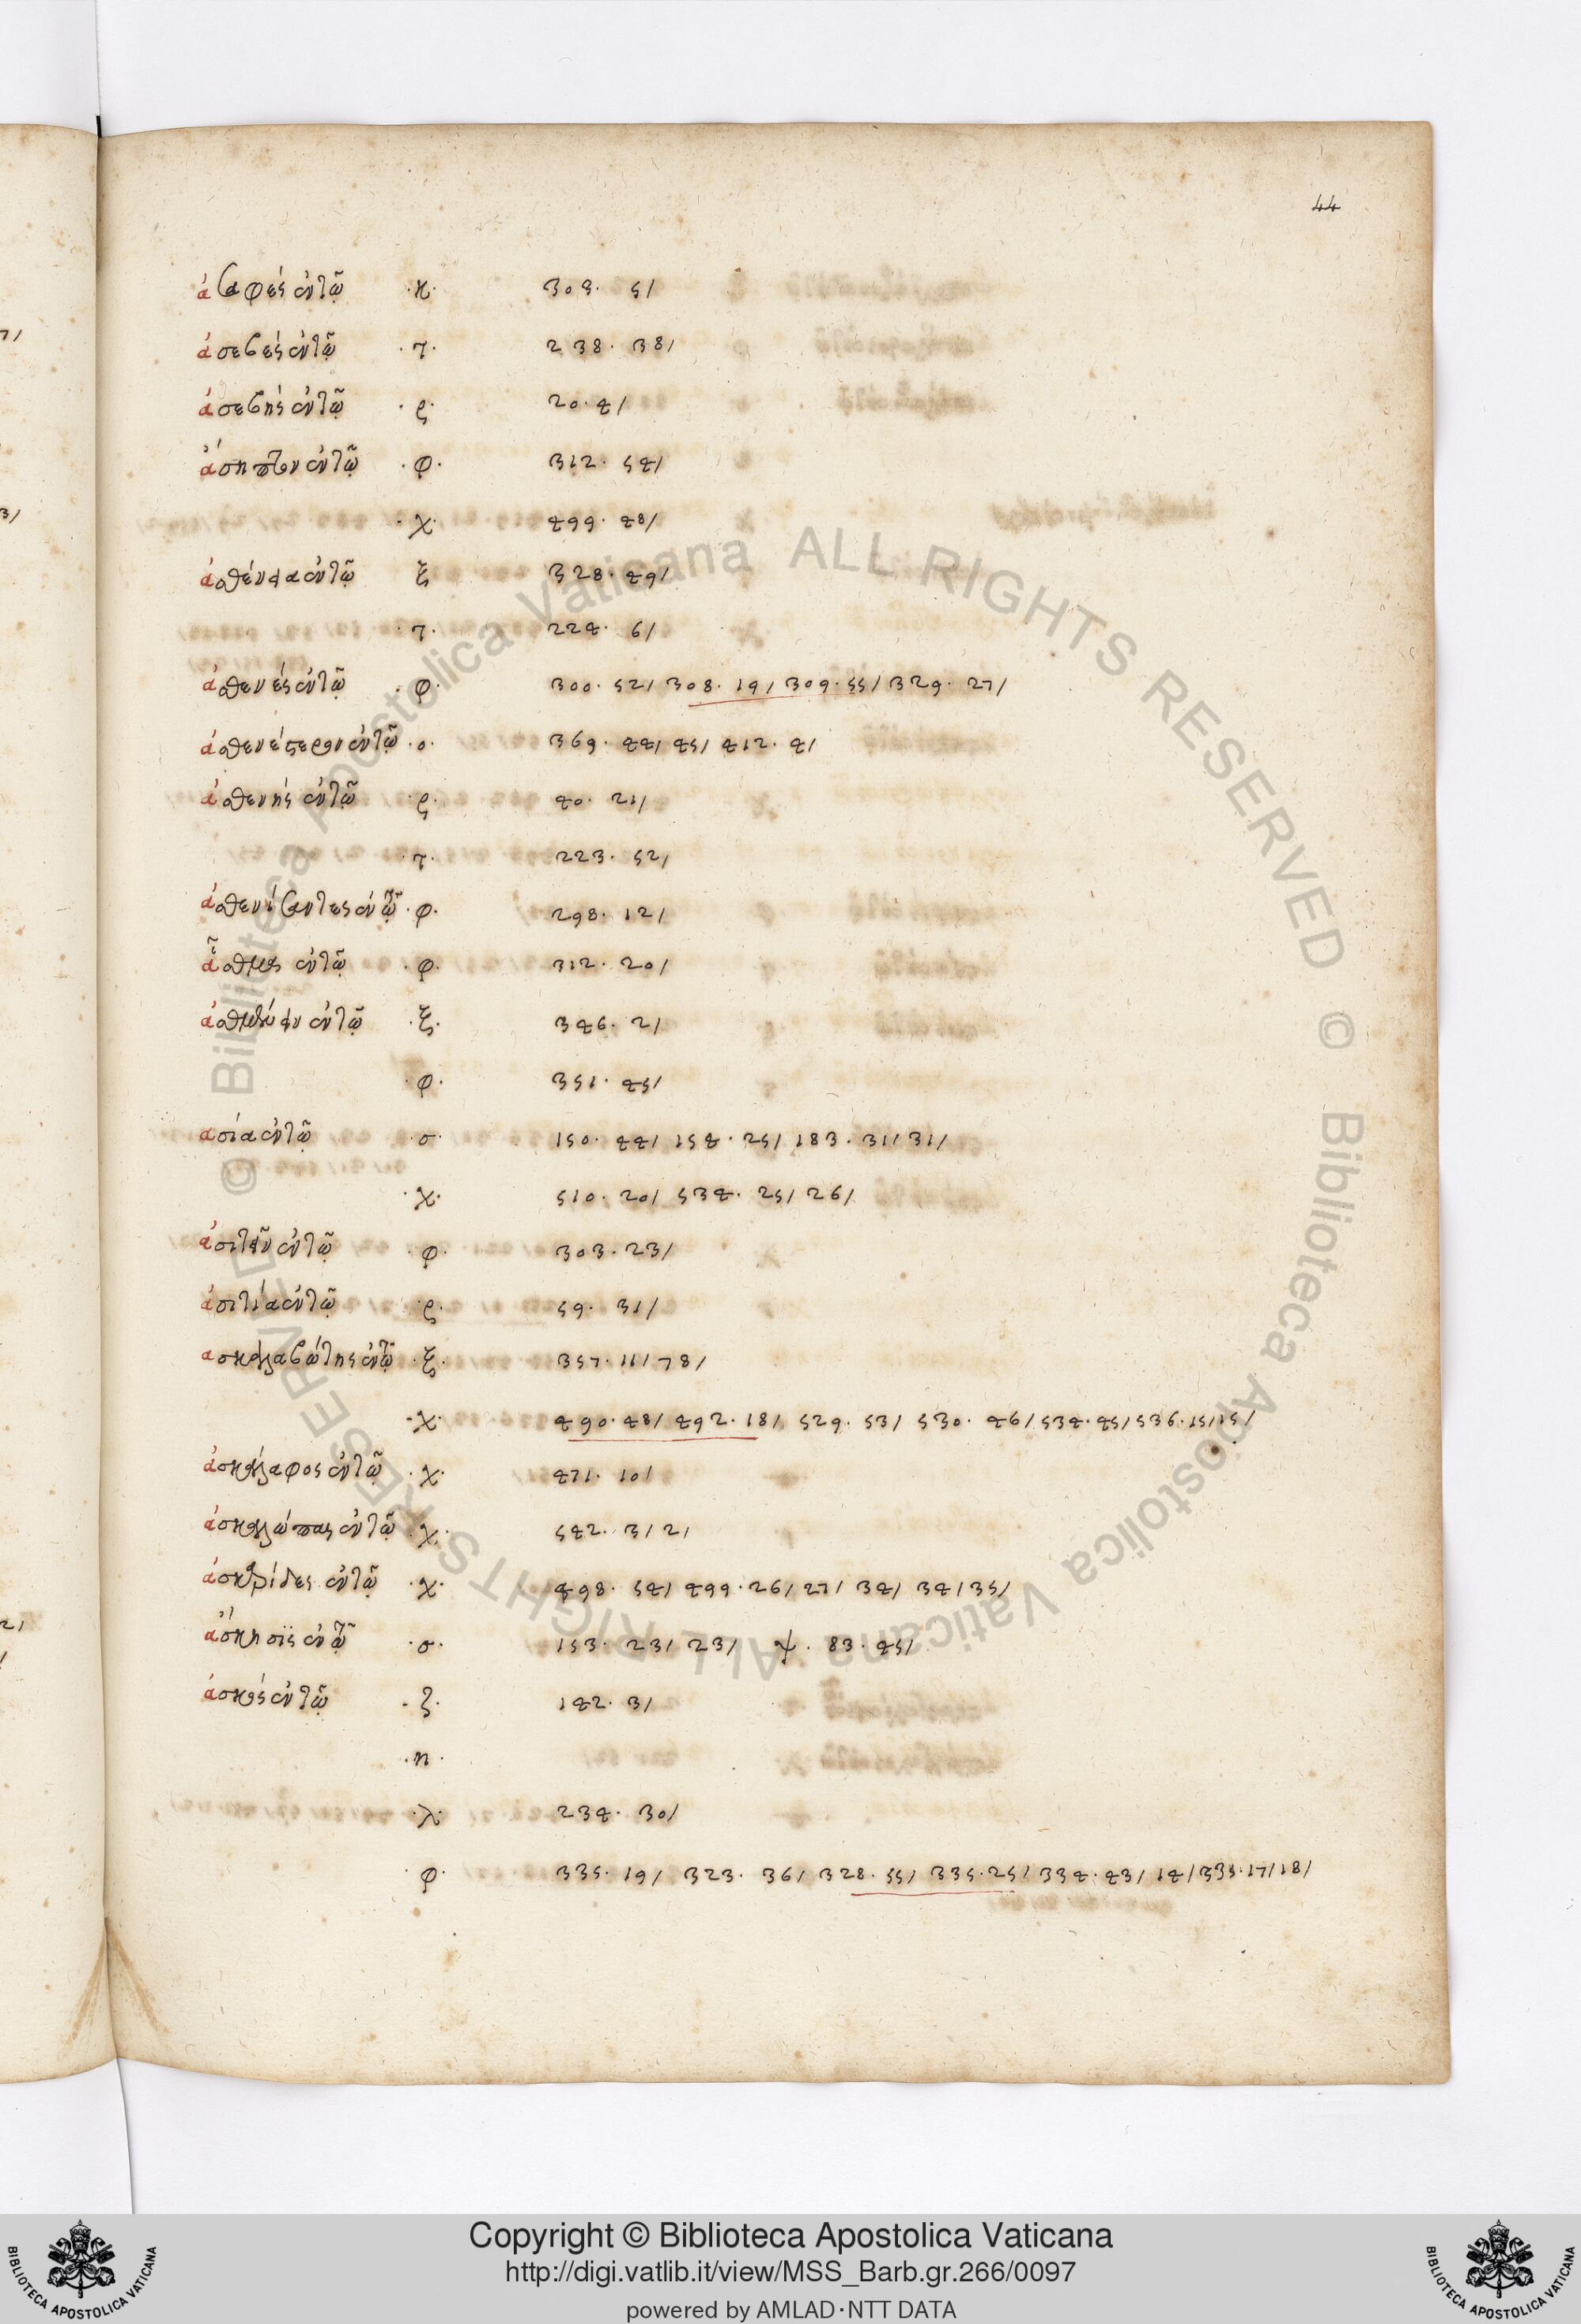 44
ἀσαφές ἐν τῷ ·κ· 305· 5/
ἀσεβές ἐν τῷ ·τ· 238· 38/
ἀσεβής ἐν τῷ ·ρ· 20· 4/
ἄσηπτον ἐν τῷ ·φ· 312· 54/
·χ· 499· 48/
ἀσθένεια ἐν τῷ ξ 328· 49/
·τ· 224· 6/
ἀσθενές ἐν τῷ ·φ· 300· 52/ 308· 19/ 309· 55/ 329· 27/
ἀσθενέστερον ἐν τῷ ·ο· 369· 44/ 45/ 412· 4/
ἀσθενής ἐν τῷ ·ρ· 40· 21/
·τ· 223· 52/
ἀσθενήσαντες ἐν τῷ ·φ· 298· 12/
ἆσθμα ἐν τῷ ·φ· 312· 20/
ἐν τῷ ·ξ· 346· 2/
·φ· 351· 45/
ασία ἐν τῷ ·σ· 150· 44/ 154· 25/ 183· 31/ 31/
·χ· 510· 20/ 534· 25/ 26/
ἀσιτεῖν ἐν τῷ ·φ· 303· 23/
ἀσιτία ἐν τῷ ·ρ· 59· 31/
ασκαλαβώτης ἐν τῷ ·ξ· 357· 11/ 78/
·χ· 490· 48/ 492· 18/ 529· 53/ 530· 46/ 534· 45/ 536· 15/ 15/
ἀσκάλαφος ἐν τῷ ·χ· 471· 10/
ἀσκαλώπας ἐν τῷ ·χ· 542· 3/ 2/
ἀσκαρίδες ἐν τῷ ·χ· 498· 54/ 499· 26/ 27/ 34/ 34/ 35/
ἄσκησις ἐν τῷ ·σ· 153· 23/ 23/ ψ· 83· 45/
ἀσκός ἐν τῷ ·ζ· 142· 3/
·η·
·λ· 234· 30/
·φ· 335· 19/ 323· 36/ 328· 55/ 335· 25/ 334· 43/ 14/ 335· 17/ 18/
© Biblioteca Apostolica Vaticana ALL RIGHTS RESERVED © Biblioteca Apostolica Vaticana ALL RIGHTS RESERVED
Copyright © Biblioteca Apostolica Vaticana
http://digi.vatlib.it/view/MSS_Barb.gr.266/0097
powered by AMLAD·NTT DATA
BIBLIOTECA APOSTOLICA VATICANA
BIBLIOTECA APOSTOLICA VATICANA